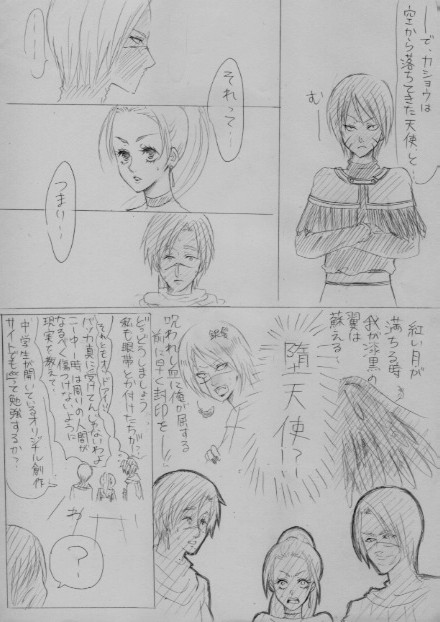 ――で、カショウは
空から落ちてきた天使、と…
むー
…
それって…
つまり…
紅い月が
満ちる時
我が漆黒の
翼は
蘇える…
堕天使!?
呪われし血に俺が屈する
前に早く封印を…
ど、どうしましょう
私も眼帯とか付けたちが?
バッカ真に受けてんじゃないわよ
二中一時は周りの人間が
なるべく傷つけないように
現実を教えて…
中学生が開いているオリジナル創作
サイトでも巡って勉強するか?
?